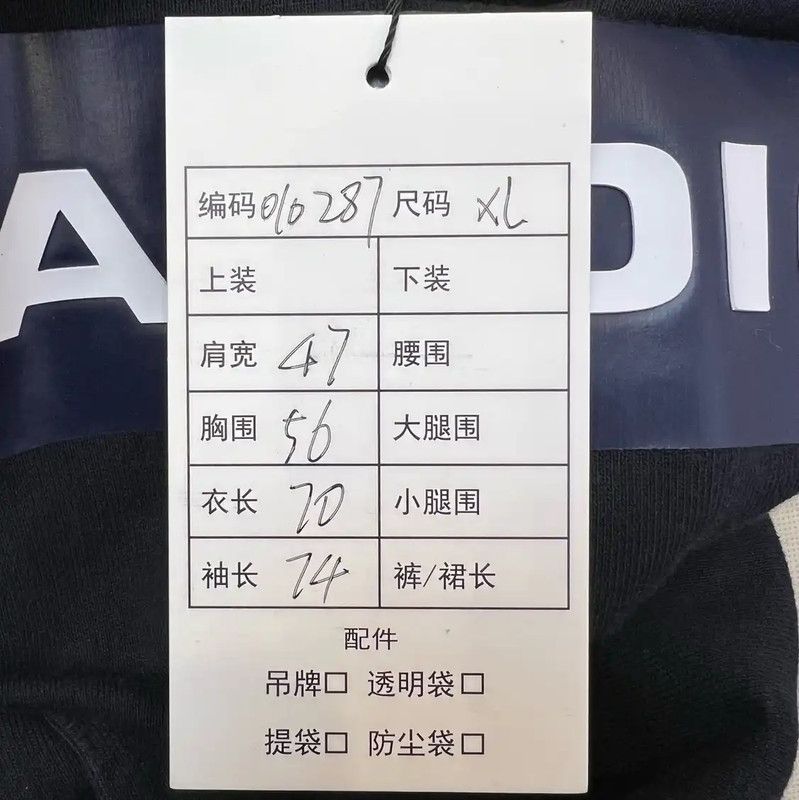 A DI
编码 010287 尺码 XL
上装 下装
肩宽 47 腰围
胸围 56 大腿围
衣长 70 小腿围
袖长 74 裤/裙长
配件
吊牌□ 透明袋□
提袋□ 防尘袋□